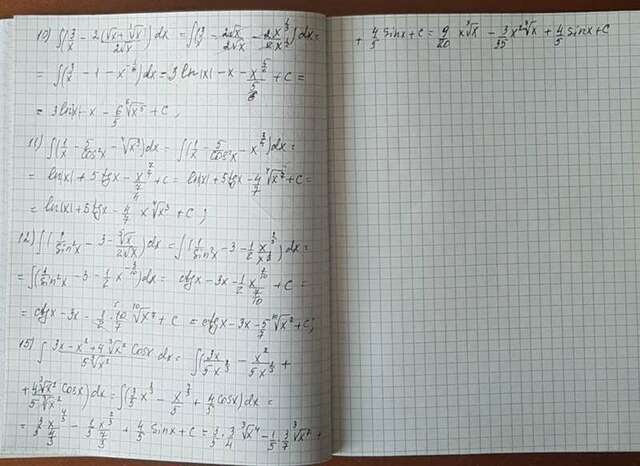 10) ∫(3/x - 2(√x + ³√x)/2√x) dx = ∫(3/x - 2√x/2√x - 2x^(1/3)/2x^(1/2)) dx =
= ∫(3/x - 1 - x^(-1/6)) dx = 3 ln|x| - x - x^(5/6)/(5/6) + C =
= 3 ln|x| - x - 6/5 ⁶√x⁵ + C ;
11) ∫(1/x - 5/cos²x - ⁴√x³) dx = ∫(1/x - 5/cos²x - x^(3/4)) dx =
= ln|x| + 5 tgx - x^(7/4)/(7/4) + C = ln|x| + 5 tgx - 4/7 ⁴√x⁷ + C =
= ln|x| + 5 tgx - 4/7 x ⁴√x³ + C ;
12) ∫(1/sin²x - 3 - ⁵√x/2√x) dx = ∫(1/sin²x - 3 - 1/2 x^(1/5)/x^(1/2)) dx =
= ∫(1/sin²x - 3 - 1/2 x^(-3/10)) dx = ctgx - 3x - 1/2 x^(7/10)/(7/10) + C =
= ctgx - 3x - 1/2 · 10/7 ¹⁰√x⁷ + C = ctgx - 3x - 5/7 ¹⁰√x⁷ + C ;
15) ∫ (3x - x² + 4 ³√x² cosx)/(5 ³√x²) dx = ∫(3x/5x^(2/3) - x²/5x^(2/3) +
+ 4 ³√x² cosx/5 ³√x²) dx = ∫(3/5 x^(1/3) - x^(4/3)/5 + 4/5 cosx) dx =
= 3/5 x^(4/3)/(4/3) - 1/5 x^(7/3)/(7/3) + 4/5 sinx + C = 3/5 · 3/4 ³√x⁴ - 1/5 · 3/7 ³√x⁷ +
+ 4/5 sinx + C = 9/20 x ³√x - 3/35 x² ³√x + 4/5 sinx + C